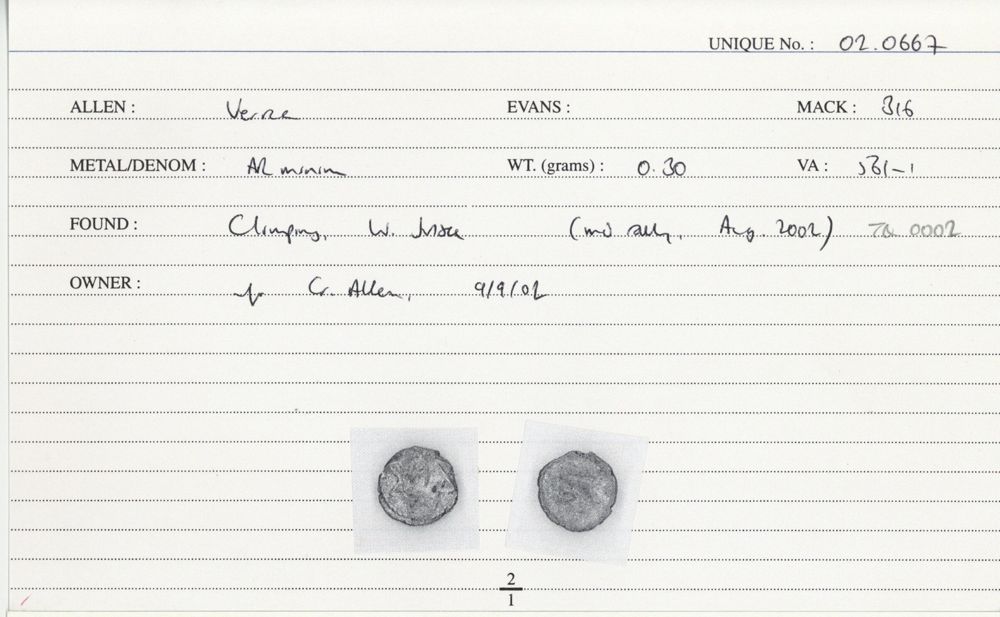 UNIQUE No. : 02.0667
ALLEN : Verica EVANS : MACK : 316
METAL/DENOM : AR minim WT. (grams) : 0.30 VA : 561-1
FOUND : Climping, W. Sussex (md rally, Aug. 2002) TQ 0002
OWNER : C. Allen, 9/9/02
2
1